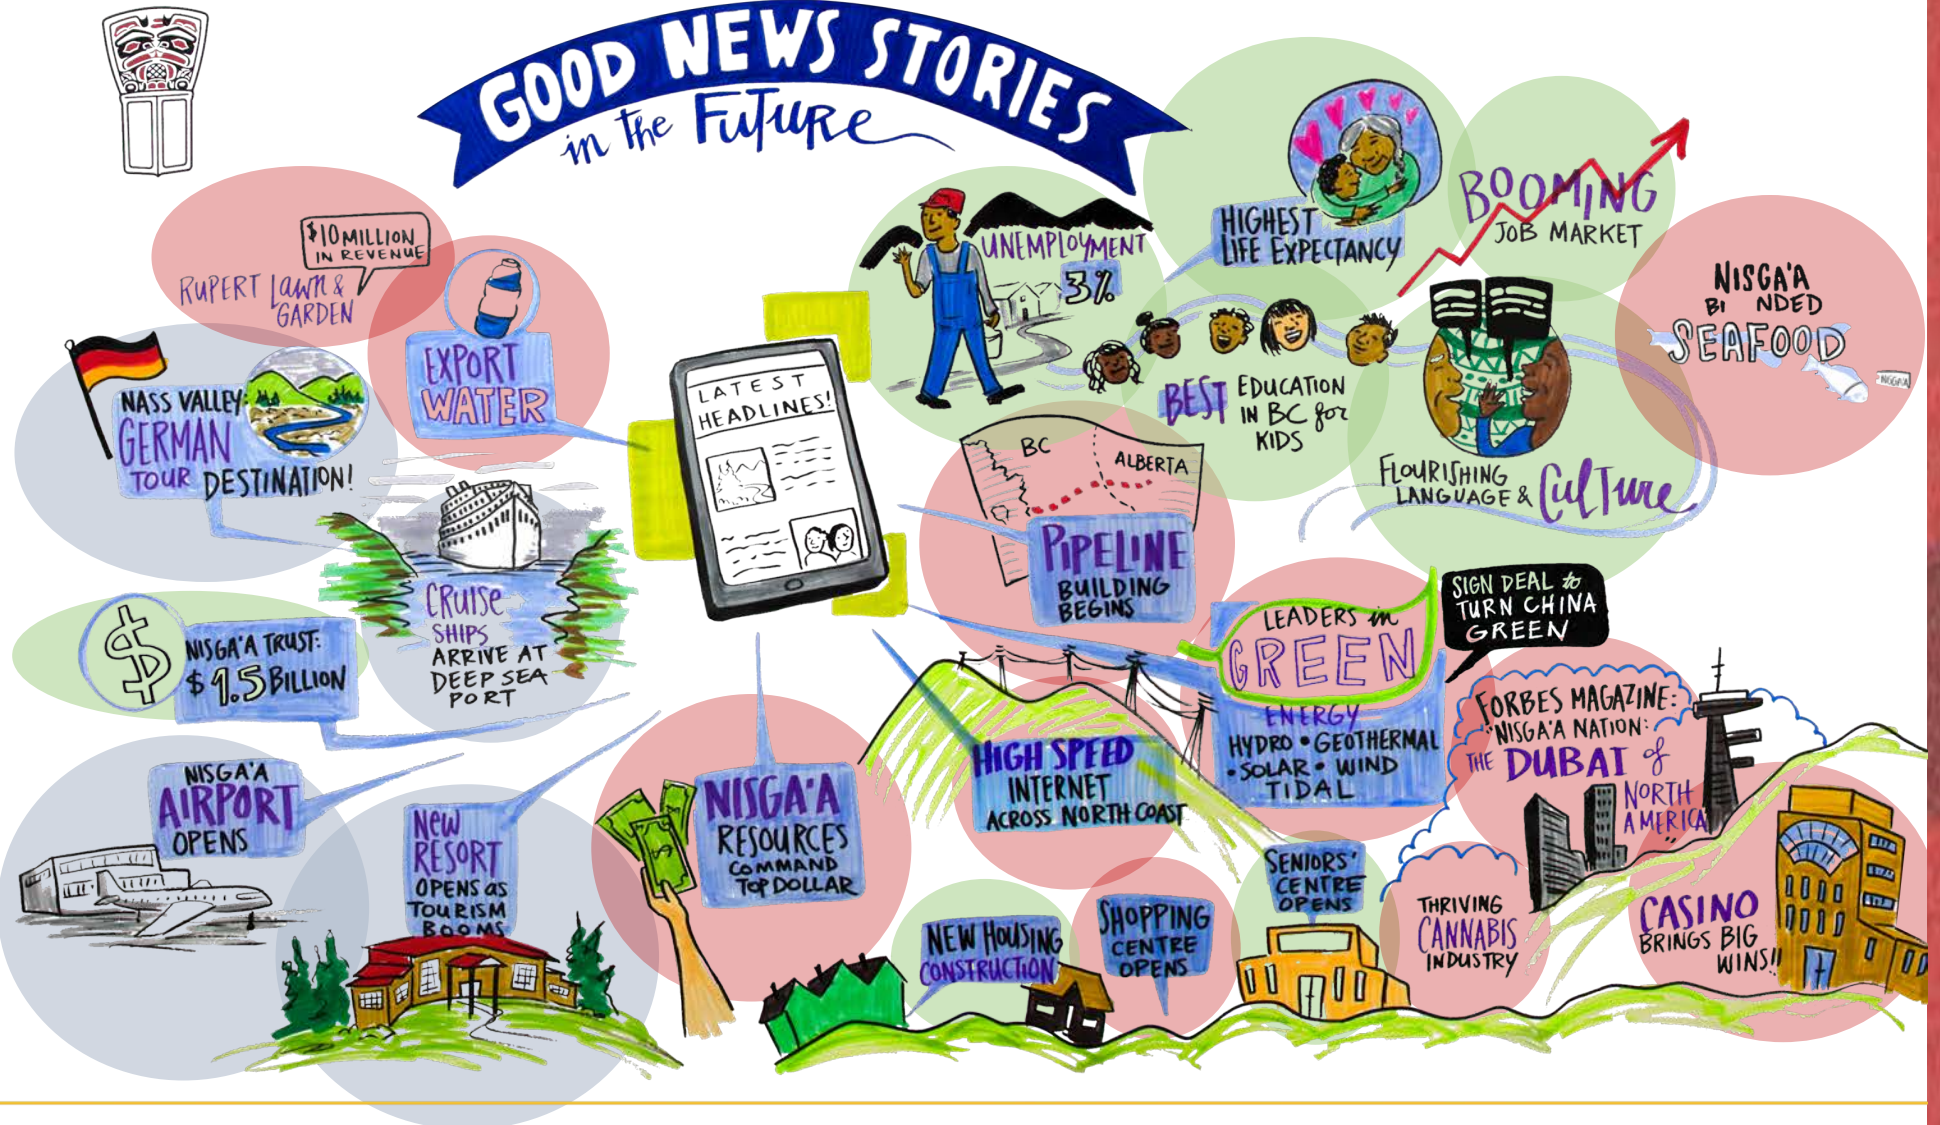 GOOD NEWS STORIES
in the FUTURE
$10 MILLION
IN REVENUE
RUPERT LAWN &
GARDEN
EXPORT
WATER
NASS VALLEY:
GERMAN
TOUR DESTINATION!
CRUISE
SHIPS
ARRIVE AT
DEEP SEA
PORT
$
NISGA'A TRUST:
$1.5 BILLION
NISGA'A
AIRPORT
OPENS
NEW
RESORT
OPENS as
TOURISM
BOOMS
LATEST
HEADLINES!
UNEMPLOYMENT
3%
HIGHEST
LIFE EXPECTANCY
BOOMING
JOB MARKET
BEST EDUCATION
IN BC for
KIDS
FLOURISHING
LANGUAGE & CULTURE
NISGA'A
BI NDED
SEAFOOD
NISGA'A
BC
ALBERTA
PIPELINE
BUILDING
BEGINS
LEADERS in
GREEN
ENERGY
HYDRO • GEOTHERMAL
• SOLAR • WIND
TIDAL
SIGN DEAL to
TURN CHINA
GREEN
FORBES MAGAZINE:
"NISGA'A NATION:
THE DUBAI of
NORTH
AMERICA"
HIGH SPEED
INTERNET
ACROSS NORTH COAST
NISGA'A
RESOURCES
COMMAND
TOP DOLLAR
$
NEW HOUSING
CONSTRUCTION
SHOPPING
CENTRE
OPENS
SENIORS'
CENTRE
OPENS
THRIVING
CANNABIS
INDUSTRY
CASINO
BRINGS BIG
WINS!!